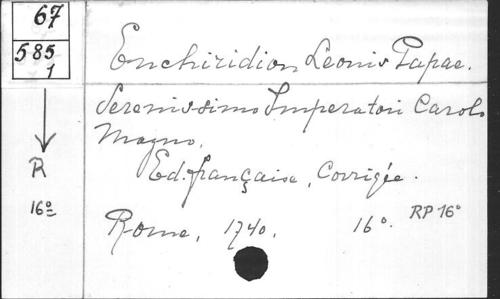 67
585
1
R
16º
Enchiridion Leonis Papae.
Serenissimo Imperatori Carolo
Magno.
Ed. française, Corrigée.
Rome, 1740. 16º. RP 16º